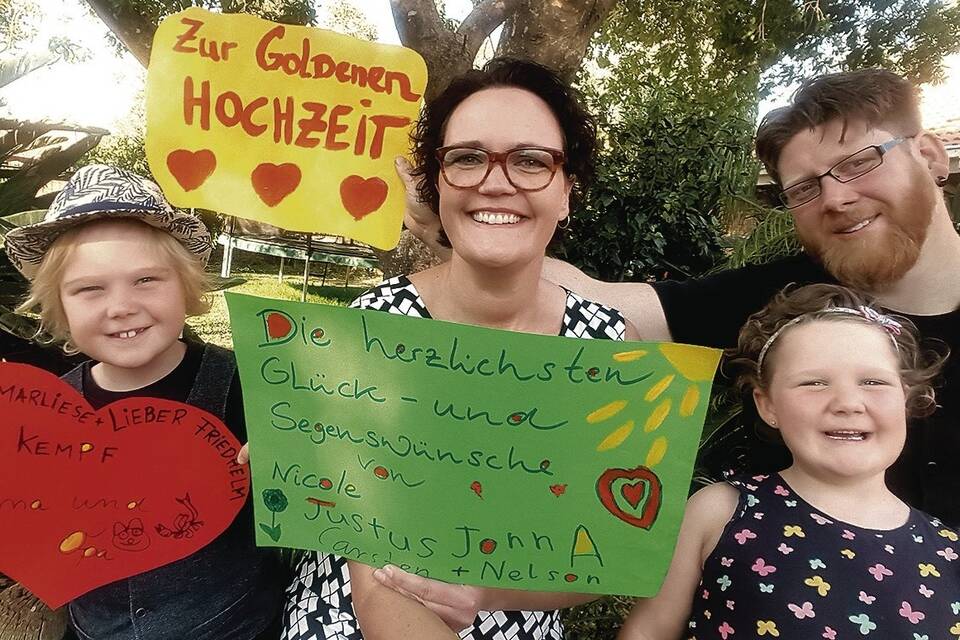 Zur Goldenen
HOCHZEIT
MARLIESE + LIEBER FRIEDHELM
KEMPF
und
Die herzlichsten
Glück - und
Segenswünsche
von
Nicole
Justus Jonn A
Carsten + Nelson